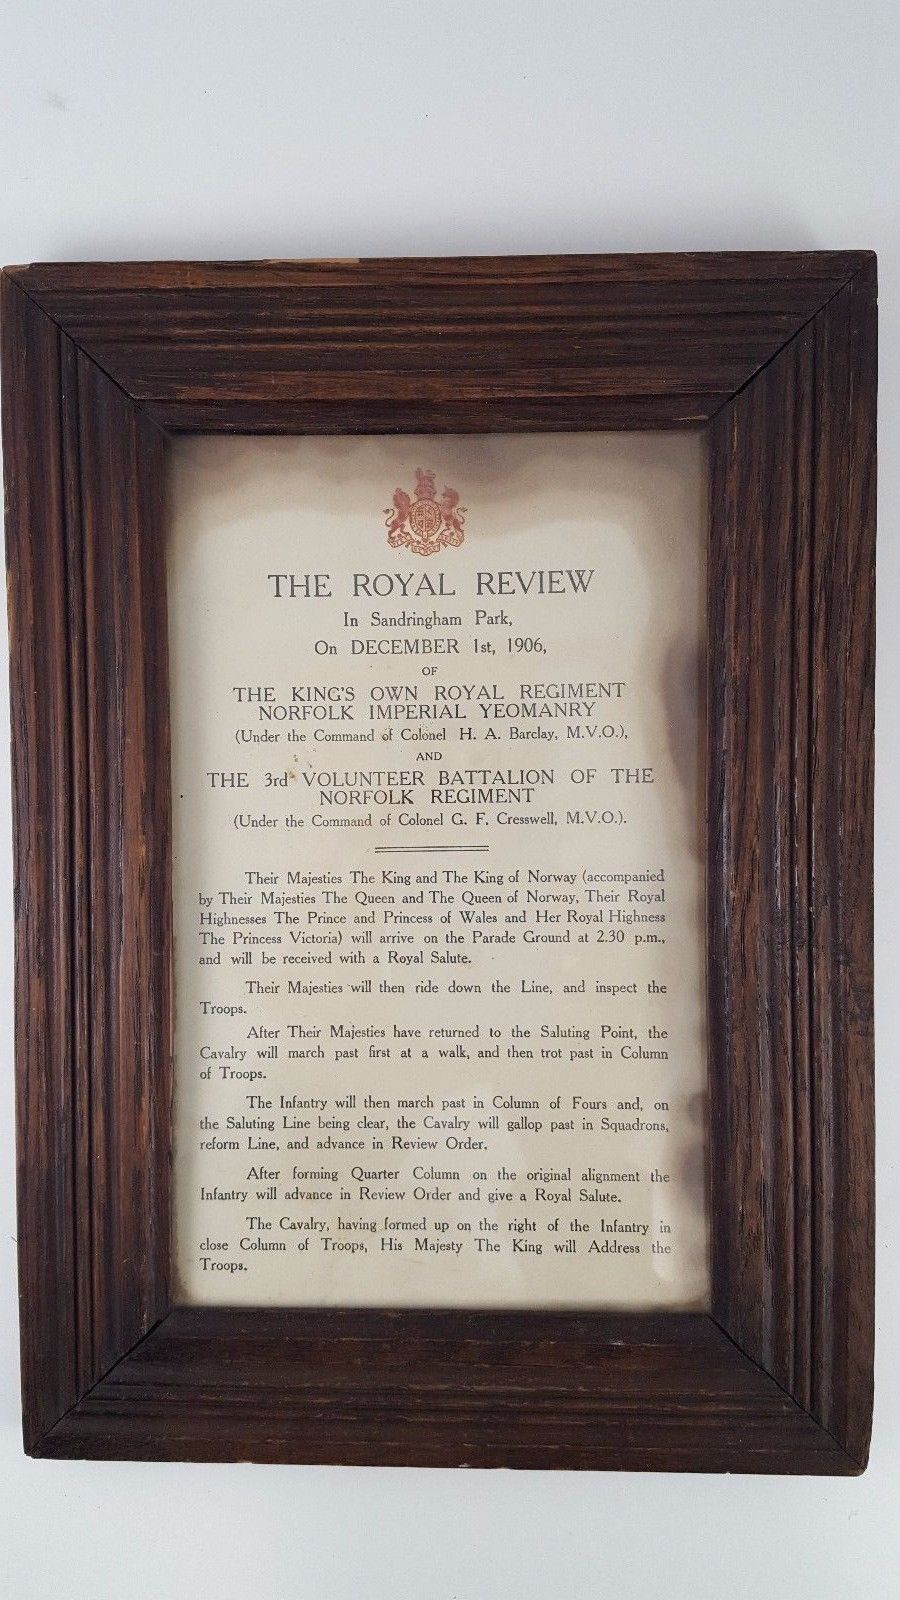 THE ROYAL REVIEW
In Sandringham Park,
On DECEMBER 1st, 1906,
OF
THE KING'S OWN ROYAL REGIMENT
NORFOLK IMPERIAL YEOMANRY
(Under the Command of Colonel H. A. Barclay, M.V.O.),
AND
THE 3rd VOLUNTEER BATTALION OF THE
NORFOLK REGIMENT
(Under the Command of Colonel G. F. Cresswell, M.V.O.).
Their Majesties The King and The King of Norway (accompanied
by Their Majesties The Queen and The Queen of Norway, Their Royal
Highnesses The Prince and Princess of Wales and Her Royal Highness
The Princess Victoria) will arrive on the Parade Ground at 2.30 p.m.,
and will be received with a Royal Salute.
Their Majesties will then ride down the Line, and inspect the
Troops.
After Their Majesties have returned to the Saluting Point, the
Cavalry will march past first at a walk, and then trot past in Column
of Troops.
The Infantry will then march past in Column of Fours and, on
the Saluting Line being clear, the Cavalry will gallop past in Squadrons,
reform Line, and advance in Review Order.
After forming Quarter Column on the original alignment the
Infantry will advance in Review Order and give a Royal Salute.
The Cavalry, having formed up on the right of the Infantry in
close Column of Troops, His Majesty The King will Address the
Troops.